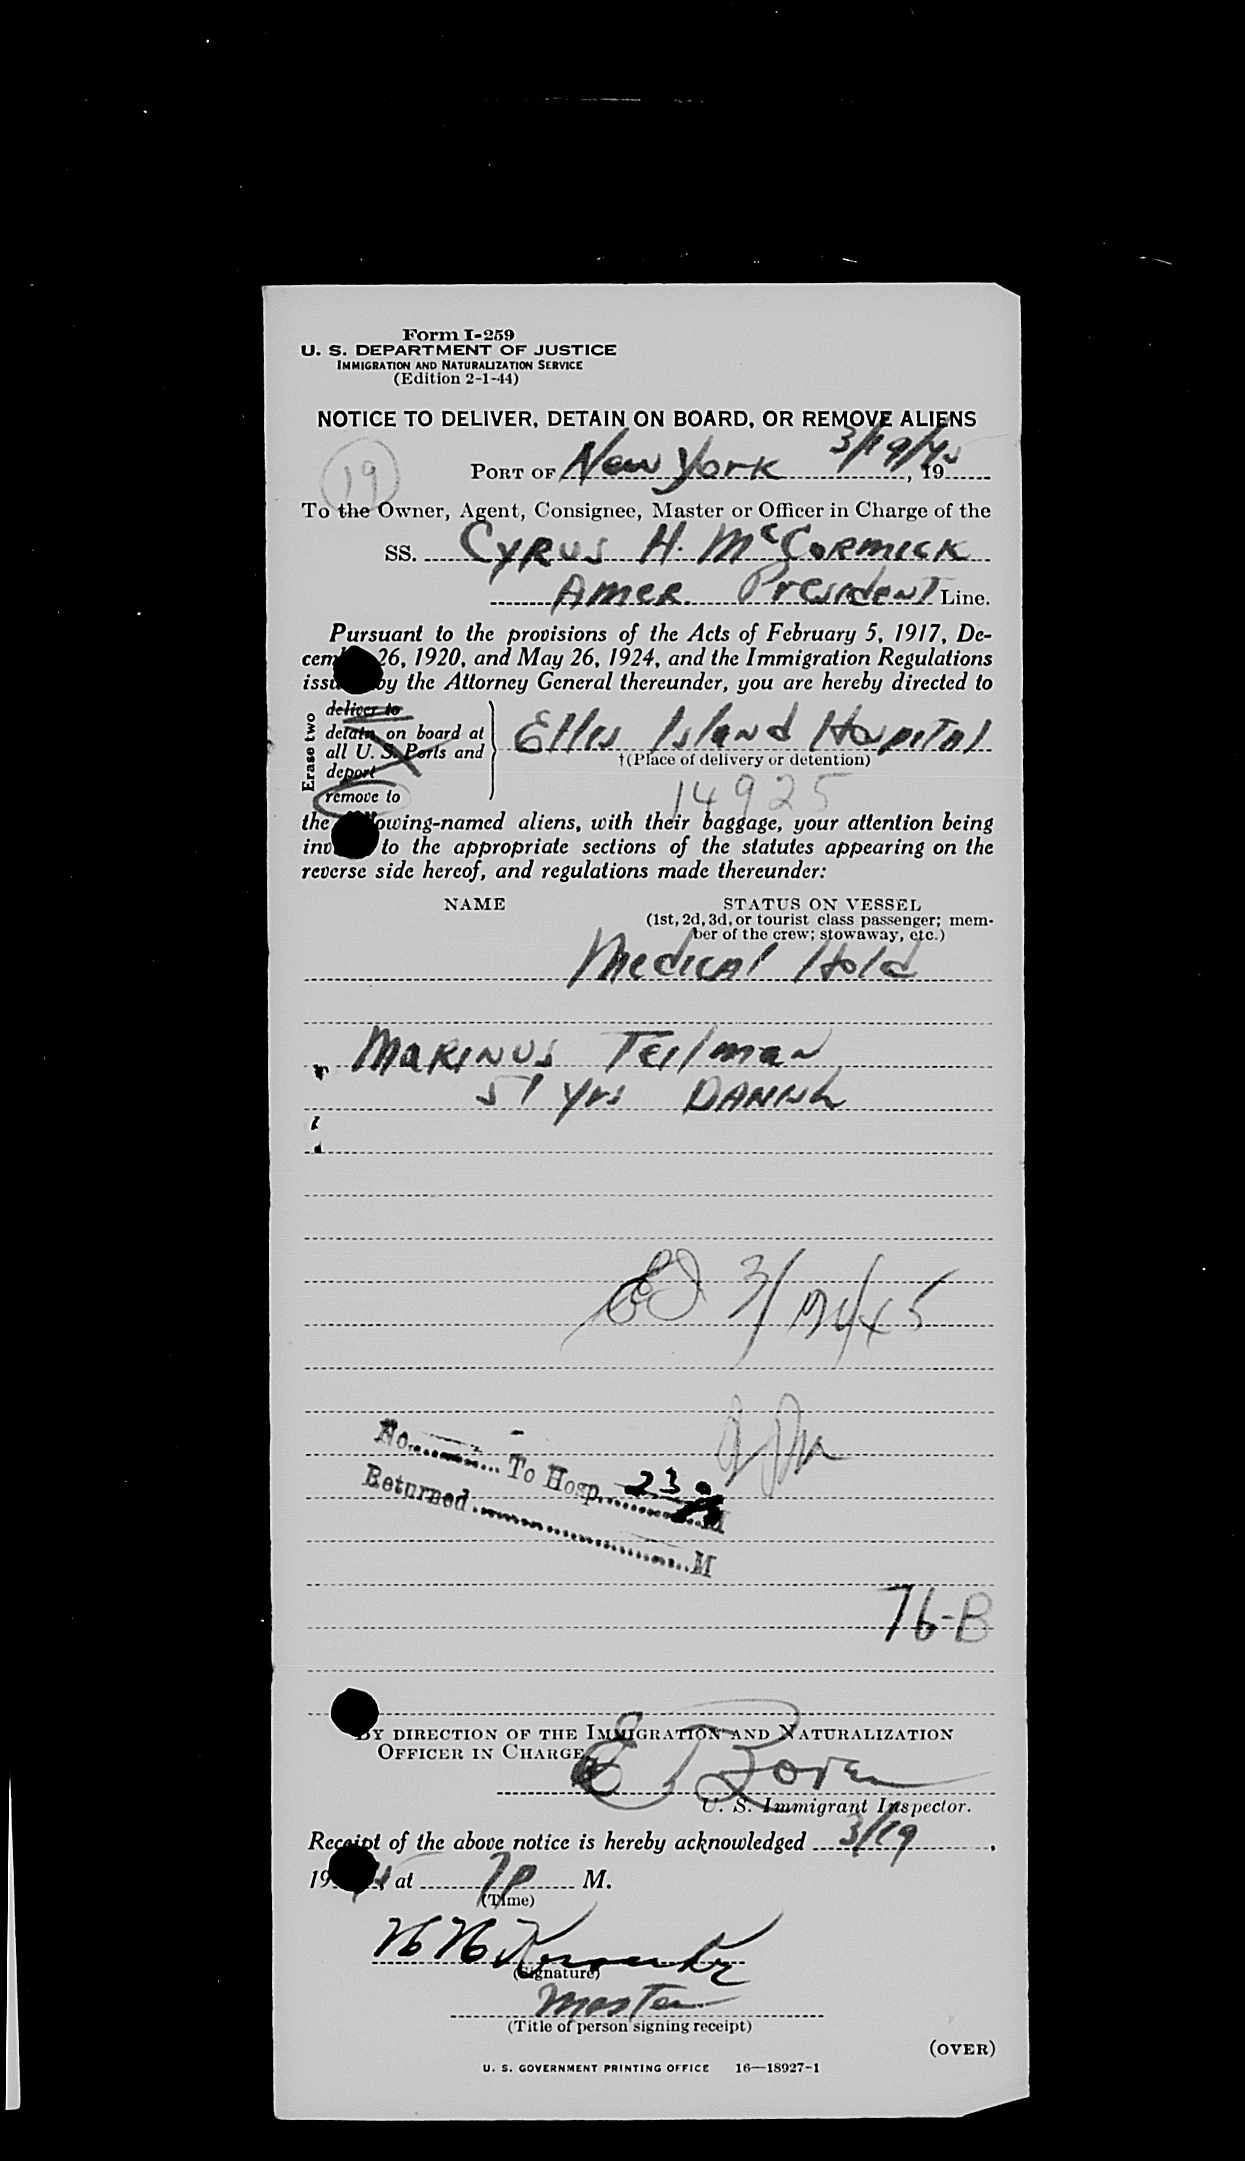 Form I-259
U. S. DEPARTMENT OF JUSTICE
IMMIGRATION AND NATURALIZATION SERVICE
(Edition 2-1-44)
NOTICE TO DELIVER, DETAIN ON BOARD, OR REMOVE ALIENS
19
PORT OF New York 3/19/45, 19
To the Owner, Agent, Consignee, Master or Officer in Charge of the
SS. CYRUS H. McCORMICK
AMER. President Line.
Pursuant to the provisions of the Acts of February 5, 1917, De-
cem 26, 1920, and May 26, 1924, and the Immigration Regulations
issu by the Attorney General thereunder, you are hereby directed to
Erase two
deliver to
detain on board at
all U. S. Ports and
deport
remove to
Ellis Island Hospital
†(Place of delivery or detention)
14925
the owing-named aliens, with their baggage, your attention being
inv to the appropriate sections of the statutes appearing on the
reverse side hereof, and regulations made thereunder:
NAME
STATUS ON VESSEL
(1st, 2d, 3d, or tourist class passenger; mem-
ber of the crew; stowaway, etc.)
Medical Hold
MARINUS Teilman
51 yrs DANISH
3/ 45
No. To Hosp. 23 M
Returned M
76-B
BY DIRECTION OF THE IMMIGRATION AND NATURALIZATION
OFFICER IN CHARGE
E
U. S. Immigrant Inspector.
Receipt of the above notice is hereby acknowledged 3/19,
19 at 7P M.
(Time)
(Signature)
Master
(Title of person signing receipt)
(OVER)
U. S. GOVERNMENT PRINTING OFFICE 16—18927-1